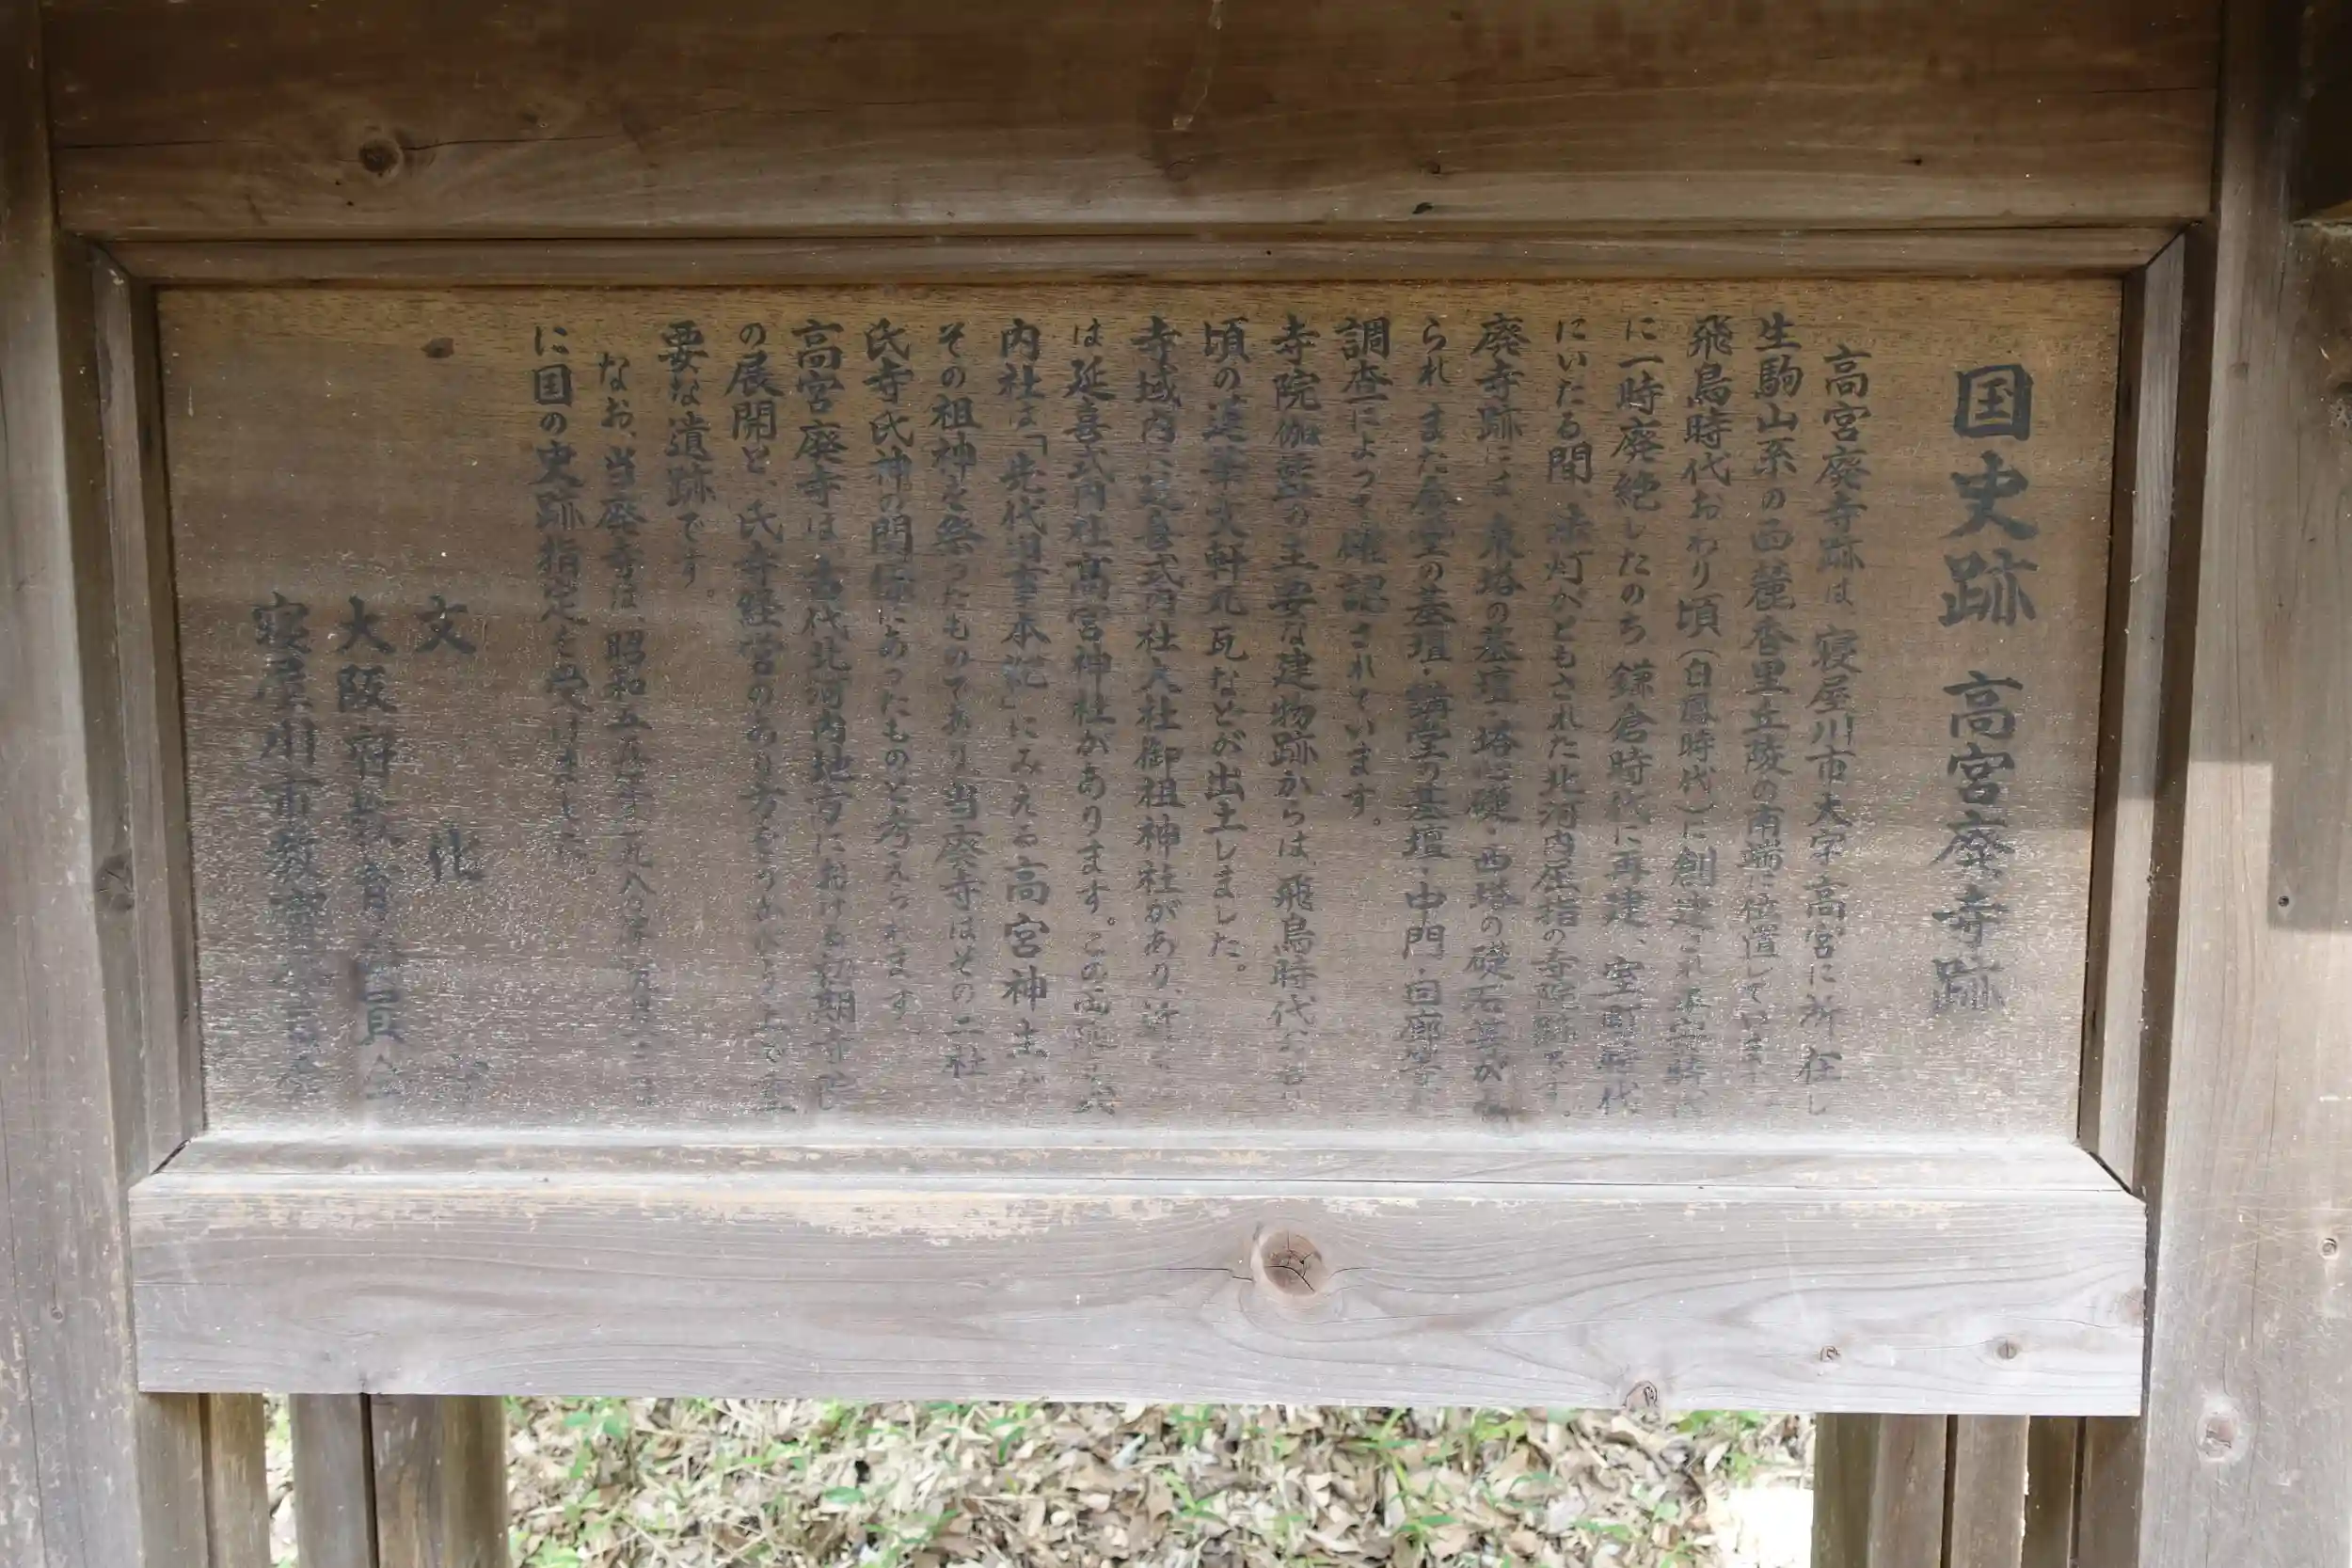 国史跡 高宮廃寺跡
高宮廃寺跡は、寝屋川市大字高宮に所在し
生駒山系の西麓香里丘陵の南端に位置しています
飛鳥時代おわり頃(白鳳時代)に創建され平安時代
に一時廃絶したのち、鎌倉時代に再建、室町時代
にいたる間、法灯がともされた北河内屈指の寺院跡です。
廃寺跡には、東塔の基壇・塔心礎・西塔の礎石等が
られ、また金堂の基壇・講堂の基壇・中門・回廊等
調査によって確認されています。
寺院伽藍の主要な建物跡からは、飛鳥時代
頃の蓮華文軒丸瓦などが出土しました。
寺域内に延喜式内社大社御祖神社があり、近
は延喜式内社高宮神社があります。この両延喜式
内社は「先代旧事本紀」にみえる高宮神主が
その祖神を祭ったものであり、当廃寺はその二社
氏寺氏神の関係にあったものと考えられます
高宮廃寺は、古代北河内地方における初期寺院
の展開と、氏寺経営のあり方をうかがう上で重
要な遺跡です。
なお、当廃寺は、昭和五五年(一九八〇年)
に国の史跡指定を受けました。
文化庁
大阪府教育委員会
寝屋川市教育委員会